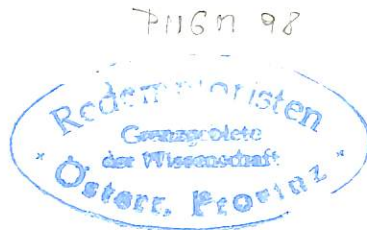 Redemptoristen
Grenzgebiete
der Wissenschaft
Österr. Provinz